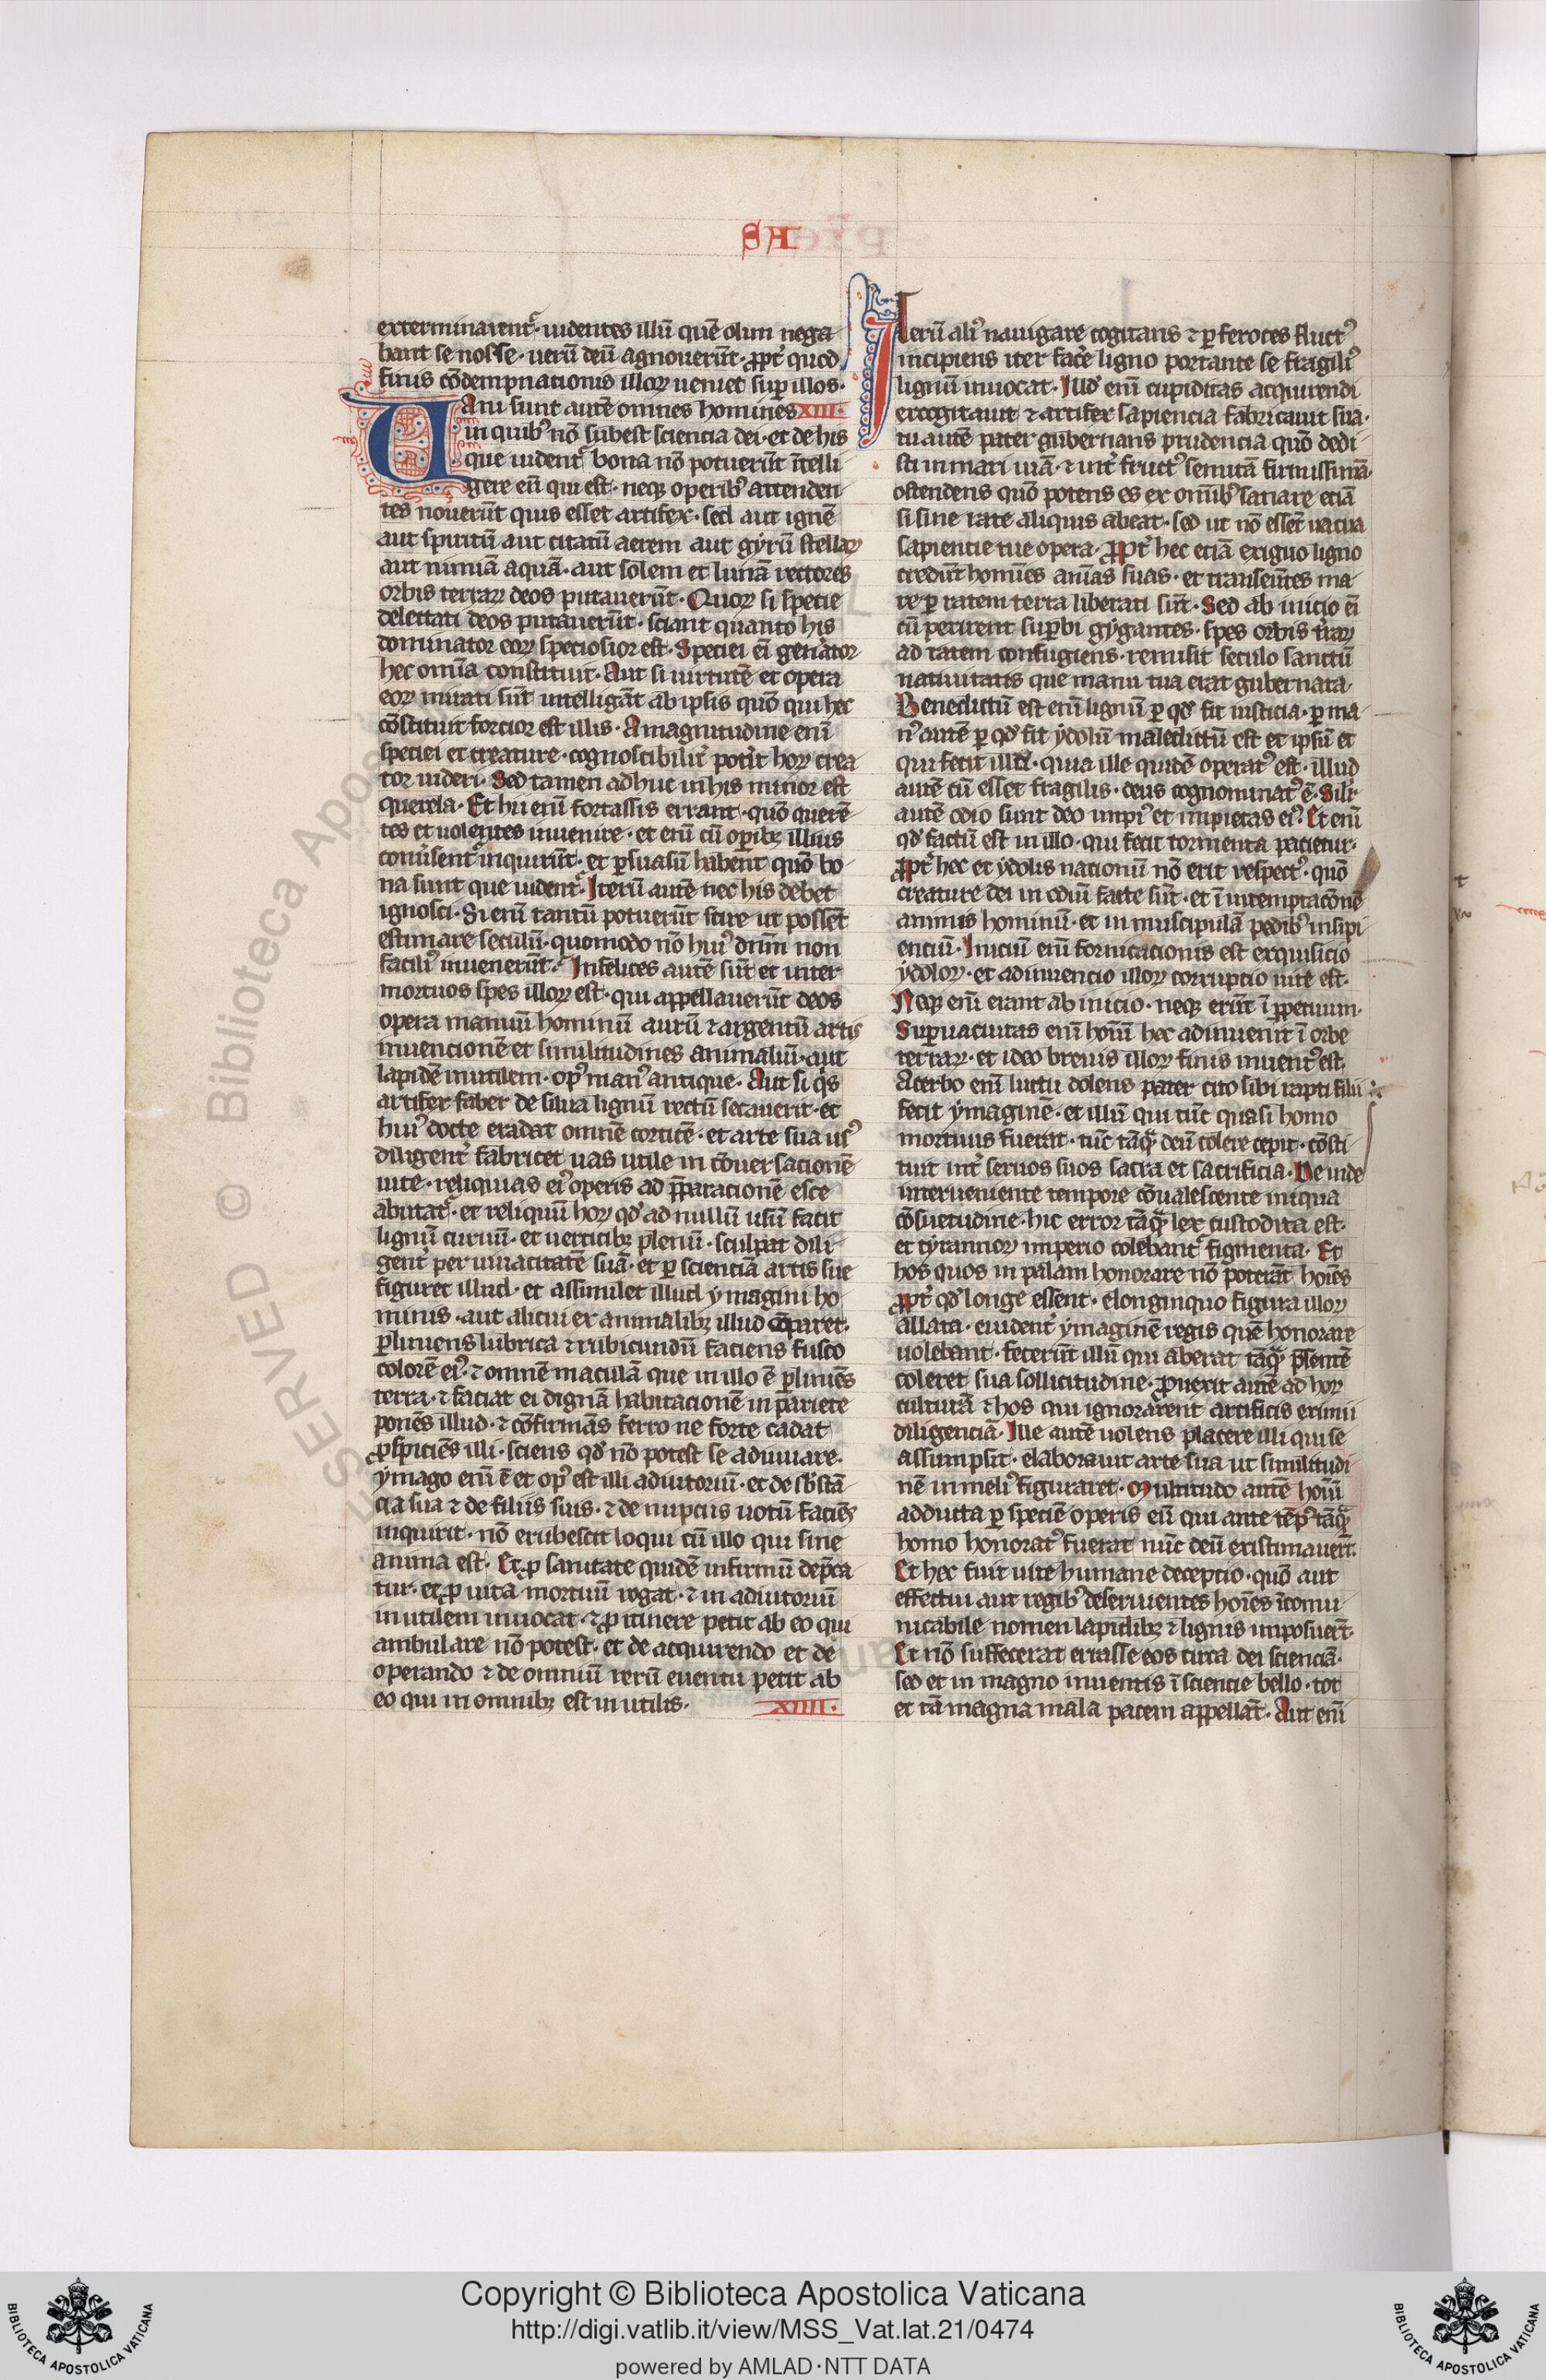 SA
exterminarent᷑· uidentes illū quē olim nega
bant se nosse· uerū deū agnouerūt· ꝓpt᷑ quod
finis cōdempnationis illoꝝ ueniet suꝑ illos·
UAni sunt autē omnes homines XIII·
in quibꝰ nō subest sciencia dei· et de his
que uident᷑ bona nō potuerūt ītelli
gere eū qui est· neqꝫ operibꝰ attenden
tes nouerūt quis esset artifex· sed aut ignē
aut spiritū aut citatū aerem aut gyrū stellaꝝ
aut nimiā aquā· aut solem et lunā rectores
orbis terraꝝ deos putauerūt· Quoꝝ si specie
delectati deos putauerūt· sciant quanto his
dominator eoꝝ speciosior est· Speciei ei̅ gen̄ator
hec om̄ia constituit· Aut si uirtutē et opera
eoꝝ mirati sūt intelligāt ab ipsis quō qui hec
cōstituit forcior est illis· A magnitudine eni̅
speciei et creature· cognoscibilit᷑ pot᷑it hoꝝ crea
tor uideri· Sed tamen adhuc in his minor est
querela· Et hii eni̅ fortassis errant· quō querē
tes et uolentes inuenire· et eni̅ cū oꝑibꝫ illius
conu᷑sent᷑ inquirūt· et ꝑsuasū habent quō bo
na sunt que uident᷑· Iterū autē nec his debet
ignosci· Si eni̅ tantū potuerūt scire ut possēt
estimare seculū· quomodo nō huiꝰ dn̄m non
faciliꝰ inuenerūt᷑· Infelices autē sūt et inter
mortuos spes illoꝝ est· qui appellauerūt deos
opera manuū hominū aurū ⁊ argentū artis
inuencionē et similitudines animaliū· aut
lapidē inutilem· opꝰ manꝰ antique· Aut si qͥs
artifex faber de silua lignū rectū secauerit· et
huiꝰ docte eradat omnē corticē· et arte sua usꝰ
diligent᷑ fabricet uas utile in cōuersacionē
uite· reliquias eiꝰ operis ad p̄paracionē esce
abutat᷑· et reliquū hoꝝ qd̕ ad nullū usū facit
lignū curuū· et uerticibꝫ plenū· sculpat dili
gent᷑ per uiuacitatē suā· et ꝑ scienciā artis sue
figuret illud· et assimilet illud ymagini ho
minis· aut alicui ex animalibꝫ illud cōparet·
ꝑliniens lubrica ⁊ rubicundū faciens fusco
colorē eiꝰ· ⁊ omnē maculā que in illo ē ꝑliniēs
terra· ⁊ faciat ei dignā habitacionē in pariete
ponēs illud· ⁊ cōfirmās ferro ne forte cadat
ꝓspiciēs illi· sciens qd̕ nō potest se adiuuare·
ymago eni̅ ē et opꝰ est illi adiutoriū· et de sb̄stā
cia sua ⁊ de filiis suis· ⁊ de nupciis uotū faciēs
inquirit· nō erubescit loqui cū illo qui sine
anima est· Et ꝓ sanitate quidē infirmū dep̄ca
tur· et ꝓ uita mortuū rogat· ⁊ in adiutoriū
inutilem inuocat· ⁊ ꝓ itinere petit ab eo qui
ambulare nō potest· et de acquirendo et de
operando ⁊ de omniū rerū euentu petit ab
eo qui in omnibꝫ est inutilis· XIIII·
Iterū aliꝰ nauigare cogitans ⁊ ꝑ feroces fluctꝰ
incipiens iter fac᷑e ligno portante se fragiliꝰ
lignū inuocat· Illd̕ eni̅ cupiditas acquirendi
excogitauit ⁊ artifex sapiencia fabricauit sua·
tu autē pater gubernans prudencia quō dedi
sti in mari uiā· ⁊ int᷑ fructꝰ semitā firmissimā·
ostendens quō potens es ex om̄ibꝰ saluare etiā
si sine rate aliquis abeat· sed ut nō essēt uacua
sapientie tue opera· ꝓpt᷑ hec etiā exiguo ligno
credūt homīes an̄ias suas· et transeūtes ma
re ꝑ ratem terra liberati sūt· Sed ab inicio ei̅
cū perirent suꝑbi gygantes· spes orbis t᷑raꝝ
ad ratem confugiens· remisit seculo sanctū
natiuitatis que manu tua erat gubernata·
Benedictū est eni̅ lignū ꝑ qd̕ fit iusticia· ꝑ ma
nꝰ autē ꝑ qd̕ fit ydolū maledictū est et ipsū et
qui fecit illd̕· quia ille quidē operatꝰ est· illud
autē cū esset fragilis· deus cognominatꝰ ē· Silr̕
autē odio sunt deo impiꝰ et impietas eiꝰ· Et eni̅
qd̕ factū est in illo· qui fecit tormenta pacietur·
ꝓpt᷑ hec et ydolis nationū nō erit respectꝰ· quō
creature dei in odiū facte sūt· et ī intemptacōnē
animis hominū· et in muscipulā pedibꝰ insipi
enciū· Iniciū eni̅ fornicacionis est exquisicio
ydoloꝝ· et adinuencio illoꝝ corruptio uite est·
Neqꝫ eni̅ erant ab inicio· neqꝫ erūt ī ꝑpetuum·
Suꝑuacuitas eni̅ hoīm̄ hec adinuenit ī orbe
terraꝝ· et ideo breuis illoꝝ finis inuentꝰ est·
Acerbo eni̅ luctu dolens pater cito sibi rapti filii
fecit ymaginē· et illū qui tūc quasi homo
mortuus fuerat· tūc tāqͣꝫ deū colere cepit· cōsti
tuit int᷑ seruos suos sacra et sacrificia· De inde
interueniente tempore cōualescente iniqua
cōsuetudine· hic error tāqͣꝫ lex custodita est·
et tyrannoꝝ imperio colebant᷑ figmenta· Et
hos quos in palam honorare nō poterāt hoīes
ꝓpt᷑ qd̕ longe essent· elonginquo figura illoꝝ
allata· euident᷑ ymaginē regis quē honorare
uolebant· fecerūt illū qui aberat tāqͣꝫ p̄sentē
coleret sua sollicitudine· ꝓuexit autē ad hoꝝ
culturā ⁊ hos qui ignorarent artificis eximii
diligenciā· Ille autē uolens placere illi qui se
assumpsit· elaborauit arte sua ut similitudi
nē in meliꝰ figuraret· Multitudo autē hoīm̄
adducta ꝑ speciē operis eū qui ante tēpꝰ tāqͣꝫ
homo honoratꝰ fuerat nūc deū existimauert̄·
Et hec fuit uite humane deceptio· quō aut
effectui aut regibꝰ deseruientes hoīes īcomu
nicabile nomen lapidibꝫ ⁊ lignis imposuert̄·
Et nō suffecerat errasse eos circa dei scienciā·
sed et in magno inuentis īsciencie bello· tot
et tā magna mala pacem appellāt· Aut eni̅
SERVED © Biblioteca Apos
Copyright © Biblioteca Apostolica Vaticana
http://digi.vatlib.it/view/MSS_Vat.lat.21/0474
powered by AMLAD·NTT DATA
BIBLIOTECA APOSTOLICA VATICANA
BIBLIOTECA APOSTOLICA VATICANA